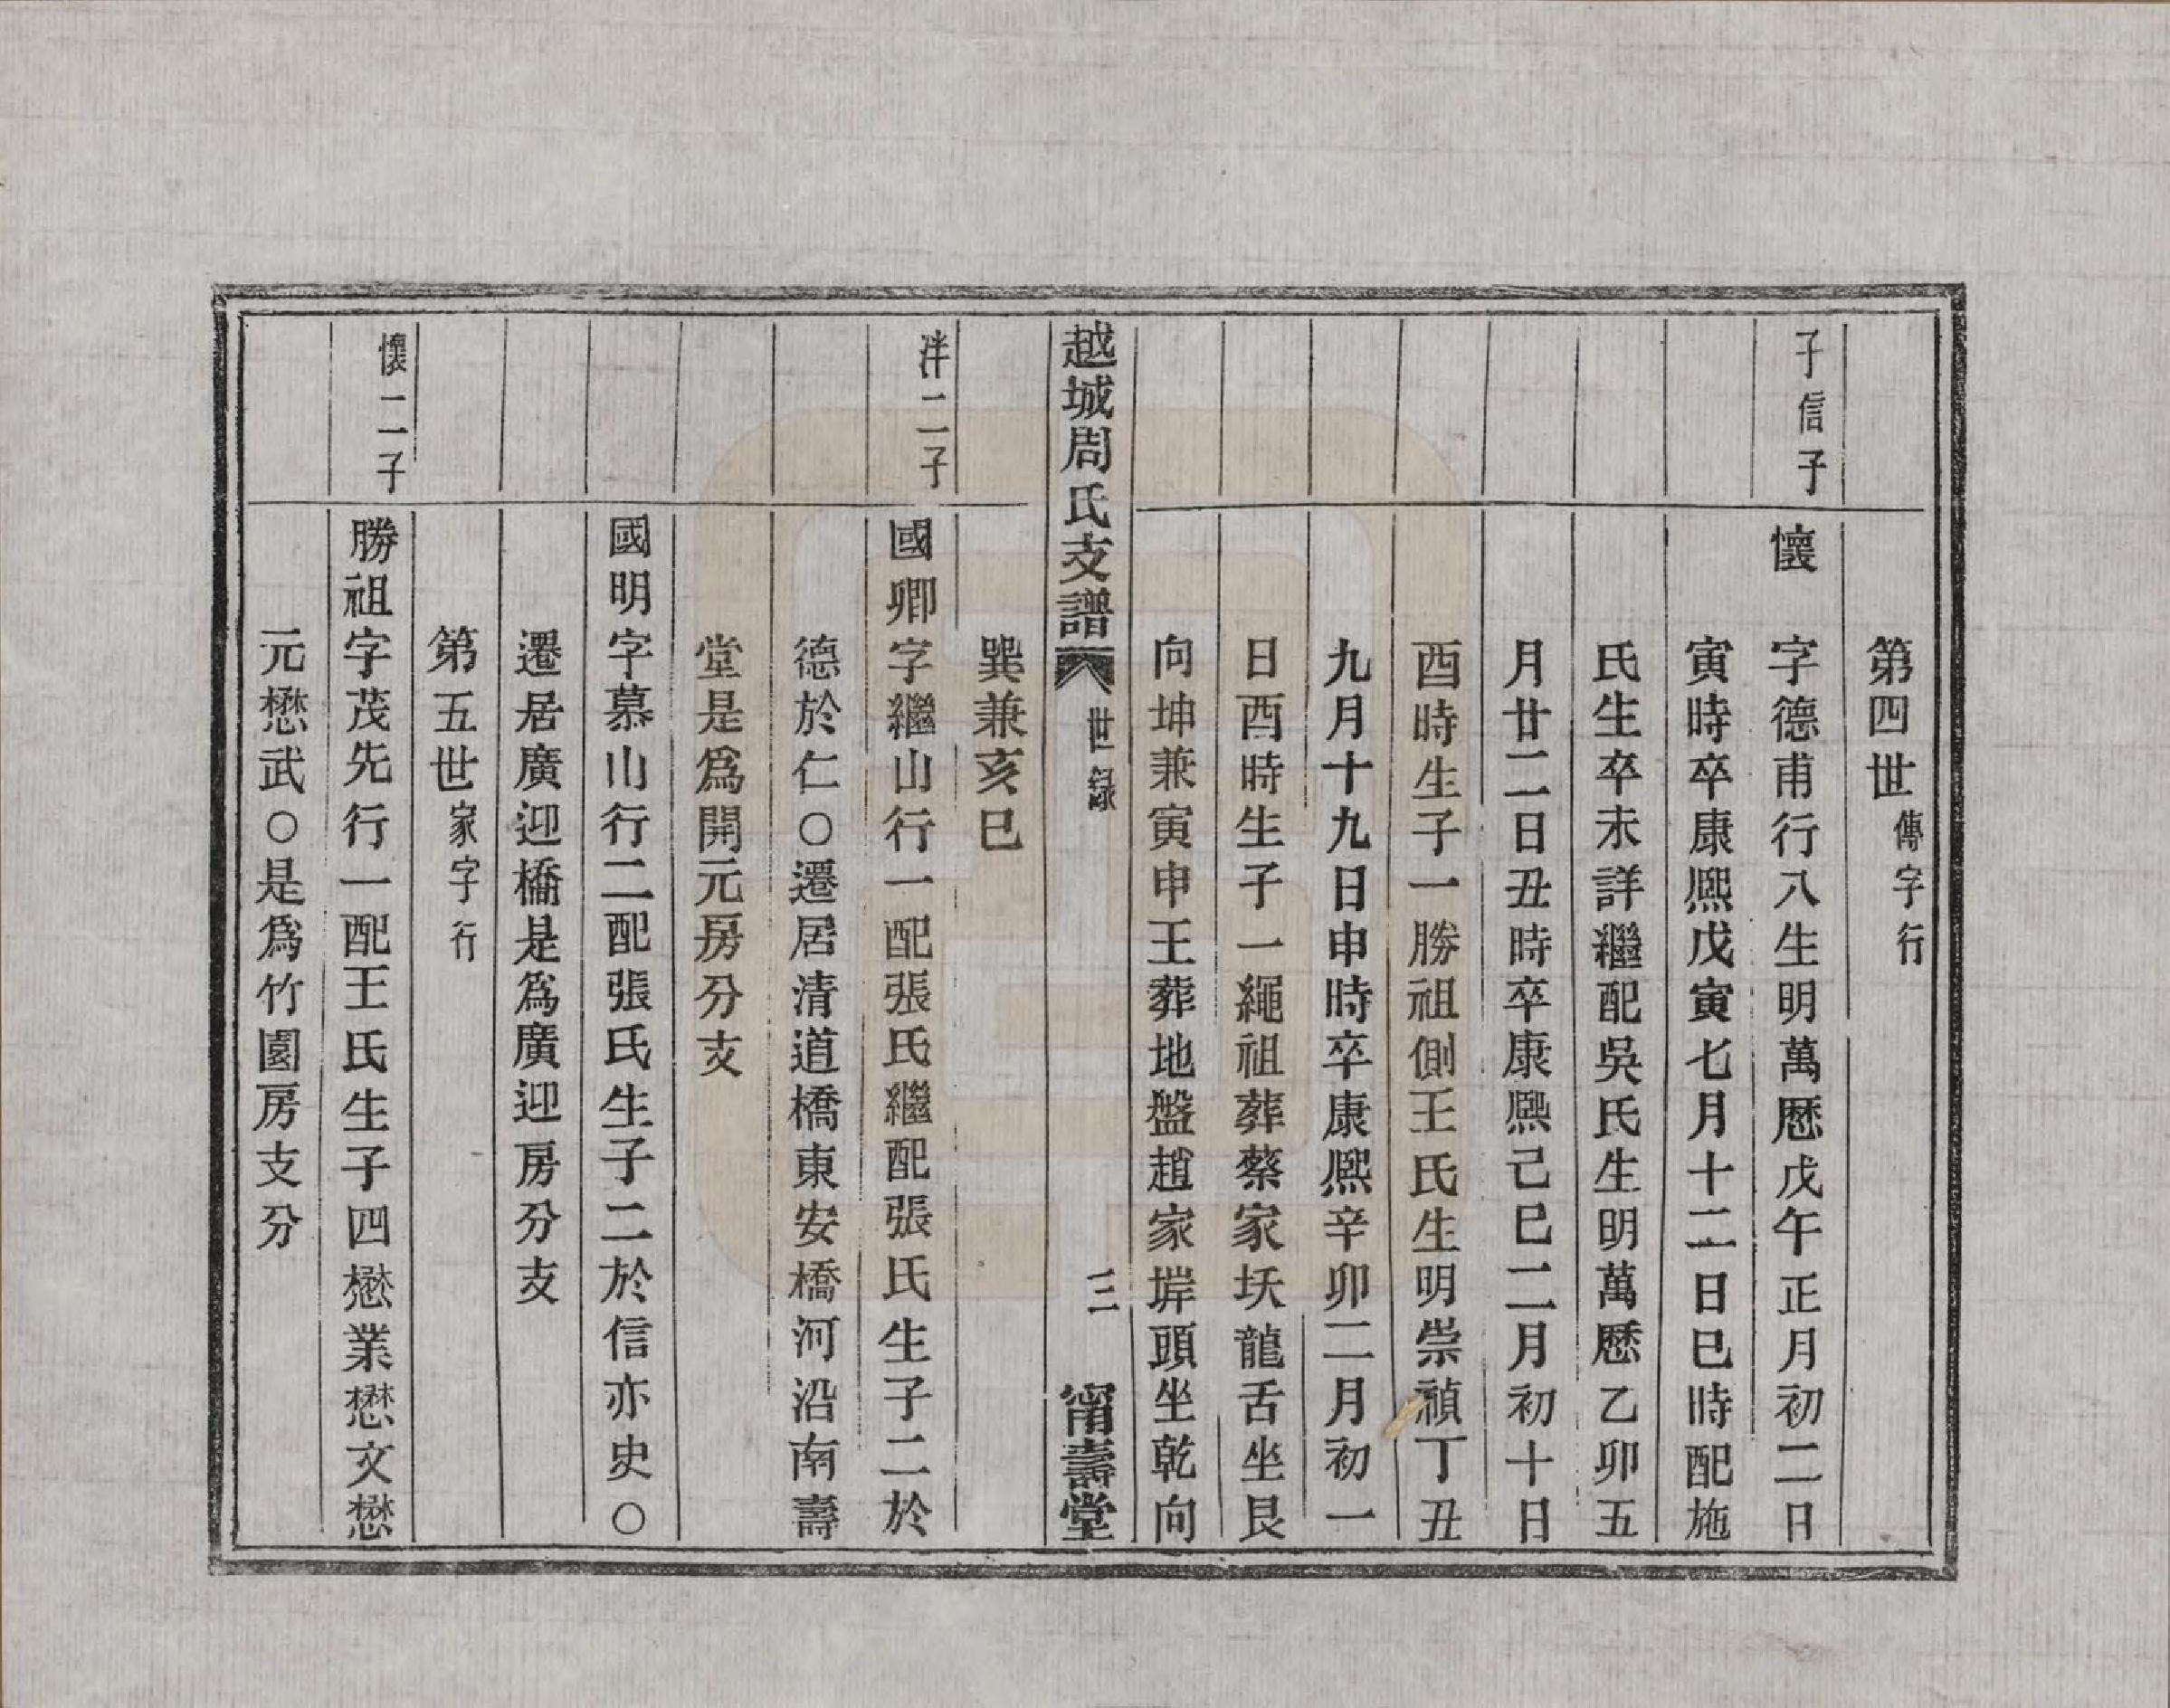 第四世傳字行
子信子
懷　字德甫行八生明萬歷戊午正月初二日
寅時卒康熙戊寅七月十二日巳時配施
氏生卒未詳繼配吳氏生明萬歷乙卯五
月廿二日丑時卒康熙己巳二月初十日
酉時生子一勝祖側王氏生明崇禎丁丑
九月十九日申時卒康熙辛卯二月初一
日酉時生子一繩祖葬蔡家㘭龍舌坐艮
向坤兼寅申王葬地盤趙家塀頭坐乾向
越城周氏支譜　世錄　三　甯壽堂
巽兼亥巳
泮二子
國卿字繼山行一配張氏繼配張氏生子二於
德於仁○遷居清道橋東安橋河沿南壽
堂是爲開元房分支
國明字慕山行二配張氏生子二於信亦史○
遷居廣迎橋是爲廣迎房分支
第五世家字行
懷二子
勝祖字茂先行一配王氏生子四懋業懋文懋
元懋武○是爲竹園房支分